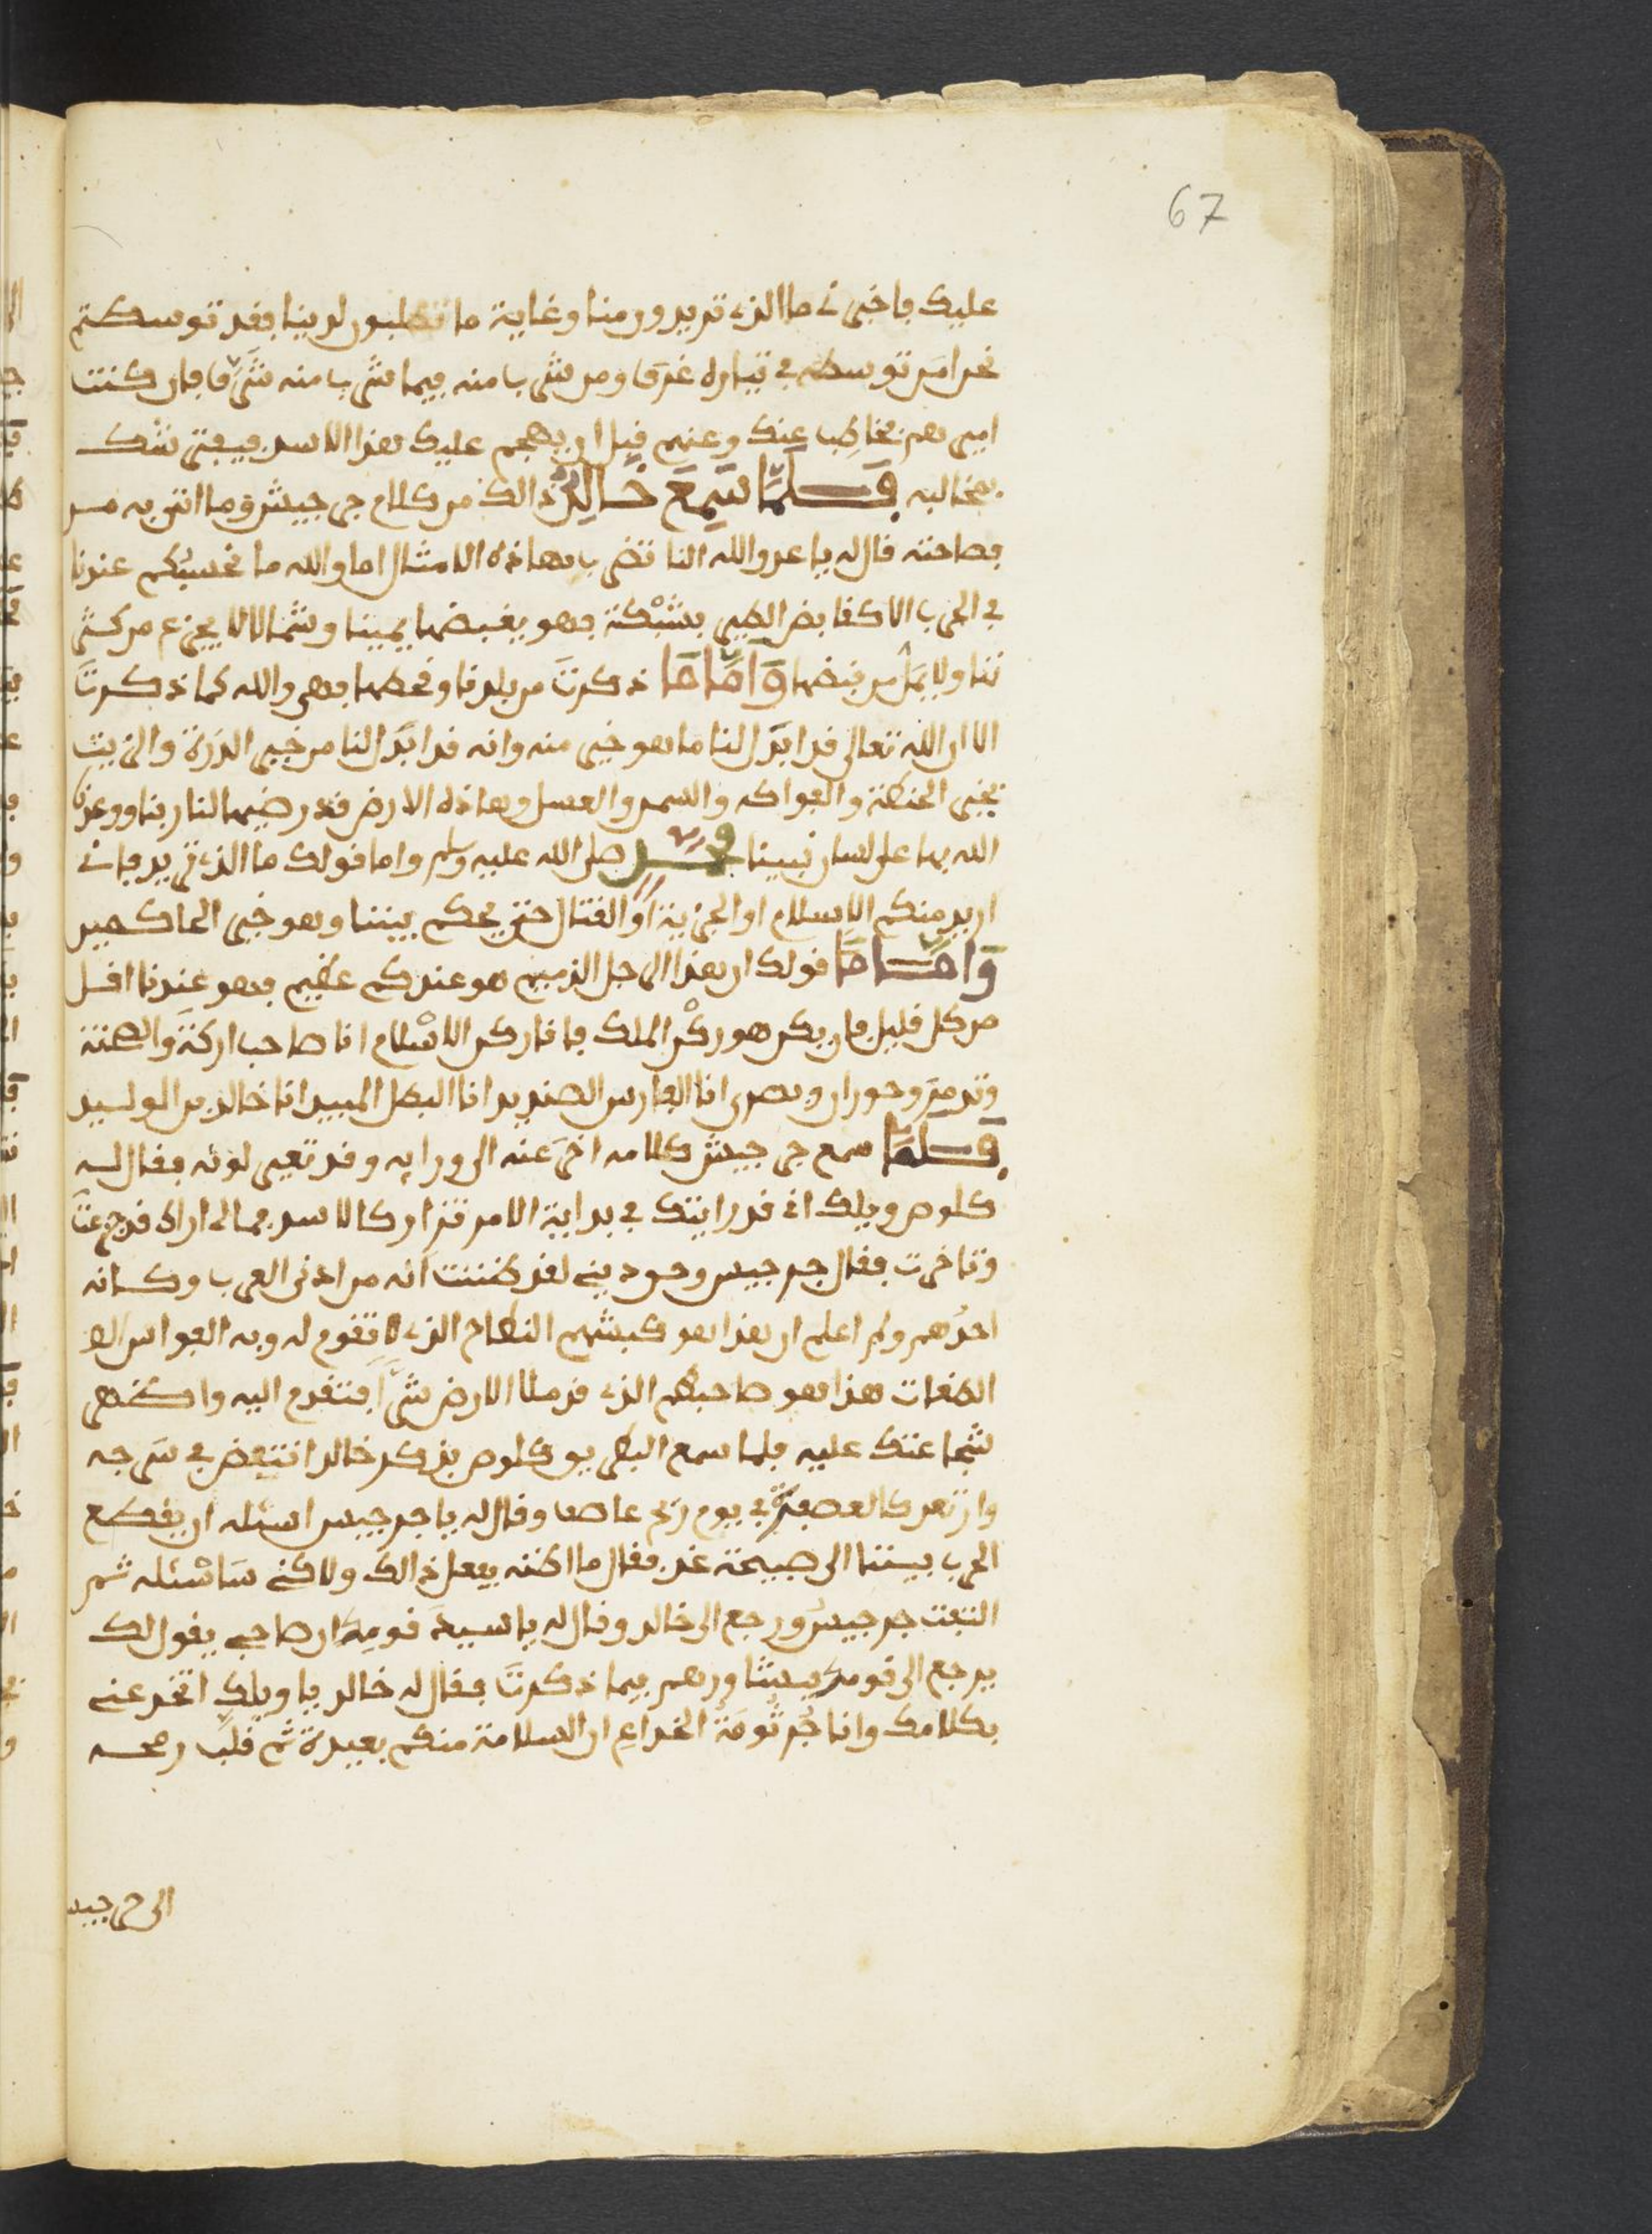 67
عليك فاخبرني ما الذي تريدون منا وغاية ما تطلبون لدينا فقد توسطتم
بحرا من توسطه في تياره غرقا ومن شرب منه فيما شرب منه شَرِقا فان كنت
اميرهم فخاطِب عنك وعنهم قبل ان يهجم عليك هذا الاسد فيبتر شك
بمخالبه فَلَمَّا سَمِعَ خَالِدٌ ذالك من كلام جرجيش وما اتى به من
فصاحته قال له يا عدو الله النا تضرب بهاذه الامثال اما والله ما نحسبُكم عندنا
في الحرب الا كقابض الطير بشبْكة فهو يقبضها يمينا وشمالا لا يجزع من كثر
تناولا يمَل من قبضها وَأَمَّا مَا ذكرتَ من بلدنا وقحطها فهي والله كما ذكرتَ
الا ان الله تعالى قد ابدَل لنا ما هو خير منه وانه قد ابدَل لنا من خبز الذرة والزيت
بخبز الحنطة والفواكه والسمن والعسل وهاذه الارض قد رضيها لنا ربنا ووعدنا
الله بها على لسان نبينا محمد صلى الله عليه وسلم واما قولك ما الذي تريد فاني
اريد منكم الاسلام او الجزية او القتال حتى يحكم بيننا وهو خير الحاكمين
وَأَمَّا مَا قولك ان هذا الرجل الذميم هو عندكم عظيم فهو عندنا اقل
من كل قليل فان يكن هو ركْن الملك فانا ركن الاسْلام انا صاحب اركة والسخنة
وتدمر وحوران وبصرى انا الفارس الصنديد انا البطل المبيد انا خالد بن الوليد
فَلَمَّا سمع جرجيش كلامه اخرَ عنه الى ورايه وقد تغير لونه فقال له
كلوص ويلك اني قد رايتك في بداية الامر تزار كالاسد فما لي اراك قد رجعت
وتاخرت فقال جرجيس وحق ديني لقد ظننت انه من ادنى العرب وكانه
احدُهم ولم اعلم ان هذا هو كبشهم النطاح الذي لا تقوم له وبه الفوارس الا
الصفات هذا هو صاحبكم الذي قد ملا الارض شرّا فتقدم اليه واظهر
شجاعتك عليه فلما سمع البطريق كلوص بذكر خالد انتفض في سرجه
وارتعد كالعصفة في يوم ريح عاصف وقال له يا جرجيس اسئله ان يقطع
الحرب بيننا الى صبيحة غد فقال ما اظنه يفعل ذالك ولاكني سَاسْئله ثم
التفت جرجيس ورجع الى خالد وقال له يا سيدَ قومِه ان صاحبي يقول لك
يرجع الى قومه فيشاورهم فيما ذكرتَ فقال له خالد يا ويلك اتخدعني
بكلامك وانا جُرثُومَة الخداع ان السلامة منكم بعيدة ثم قلَب رمحه
الى جرجيس